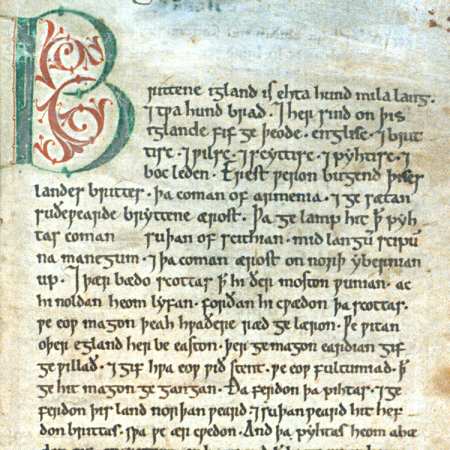 Brittene igland is ehta hund mila lang.
⁊ tƿa hund brad. ⁊ her sind on þis
iglande fif ge þeode. englisc. ⁊ brit
tisc. ⁊ ƿilsc. ⁊ scyttisc. ⁊ pyhtisc. ⁊
boc leden. Erest ƿeron bugend þises
landes brittes. þa coman of armenia. ⁊ ge sætan
suðeƿearde bryttene ærost. Þa ge lamp hit ꝥ pyh
tas coman suþan of scithian. mid langū scipū
na manegum. ⁊ þa coman ærost on norþ ybernian
up. ⁊ þær bædo scottas ꝥ hi ðer moston ƿunian. ac
hi noldan heom lyfan. forðan hi cƿædon þa scottas.
ƿe eoƿ magon þeah hƿaðere ræd ge læron. Ƿe ƿitan
oþer egland her be easton. þer ge magon eardian gif
ge ƿillað. ⁊ gif hƿa eoƿ ƿið stent. ƿe eoƿ fultumiað. ꝥ
ge hit magon ge gangan. Ða ferdon þa pihtas. ⁊ ge
ferdon þis land norþan ƿeard. ⁊ suþan ƿeard hit hef
don brittas. sƿa ƿe ær cƿedon. And þa pyhtas heom abæ